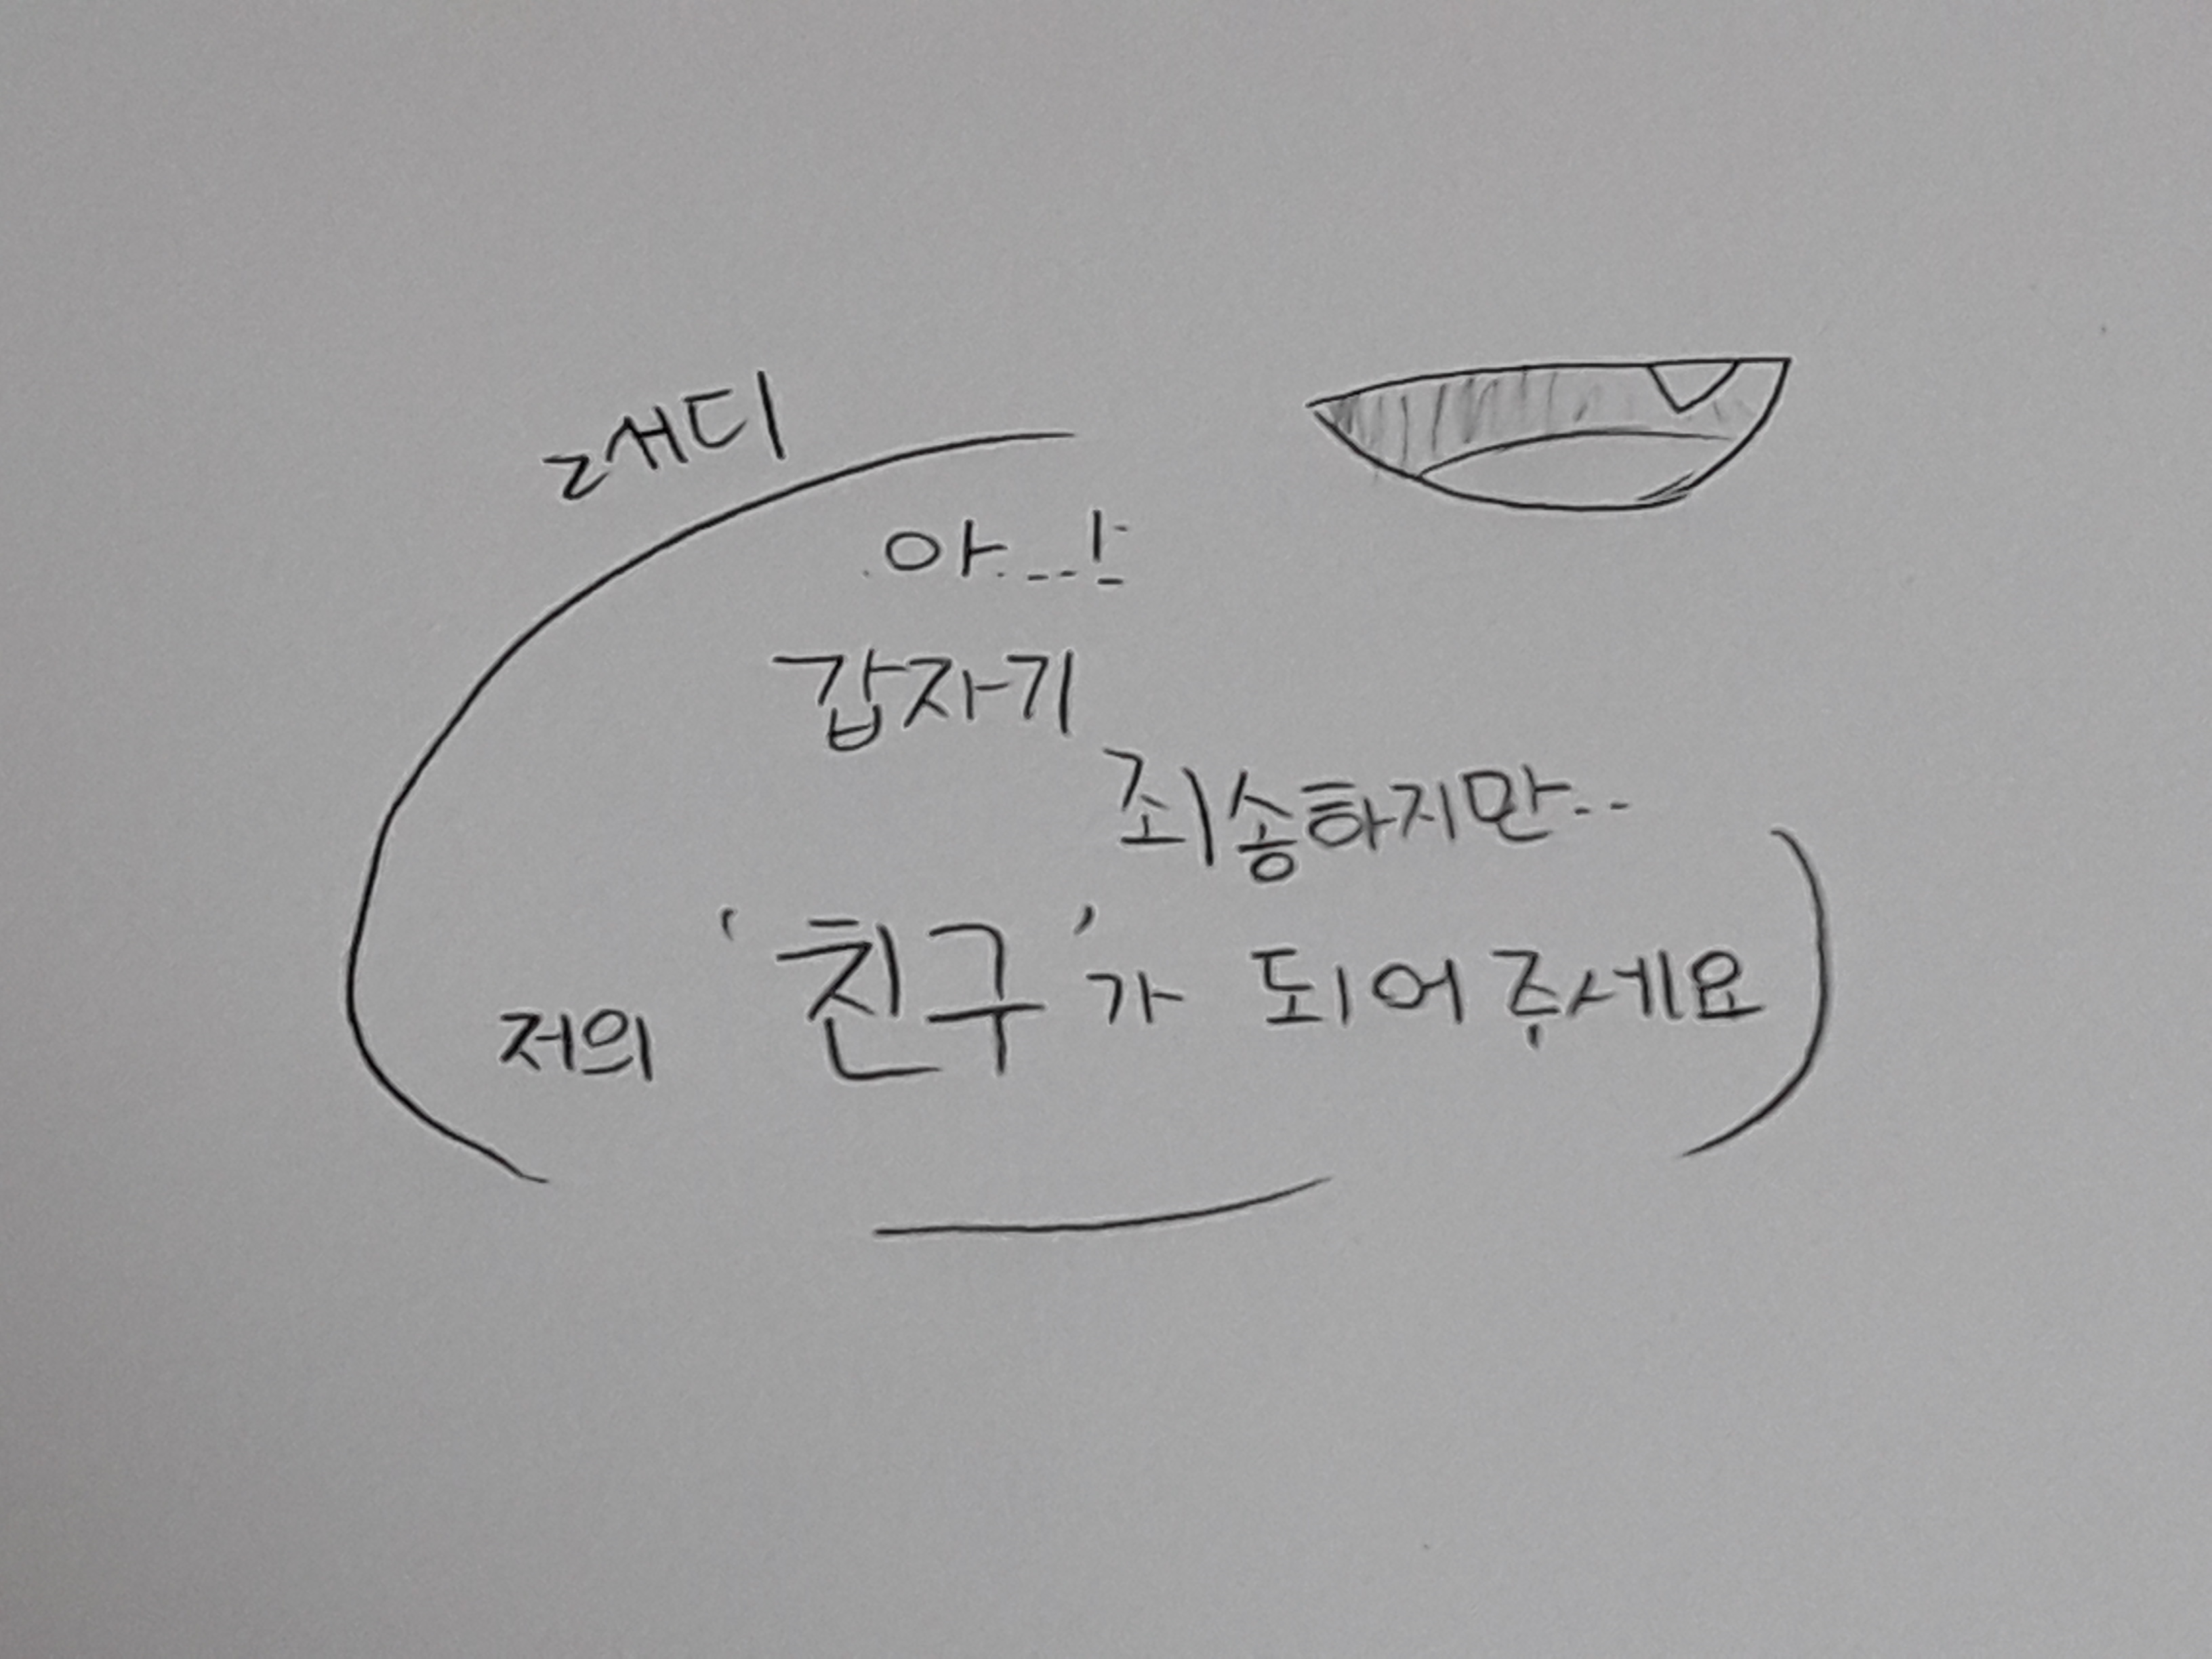 래디
아...!
갑자기
죄송하지만..
저의 '친구'가 되어주세요